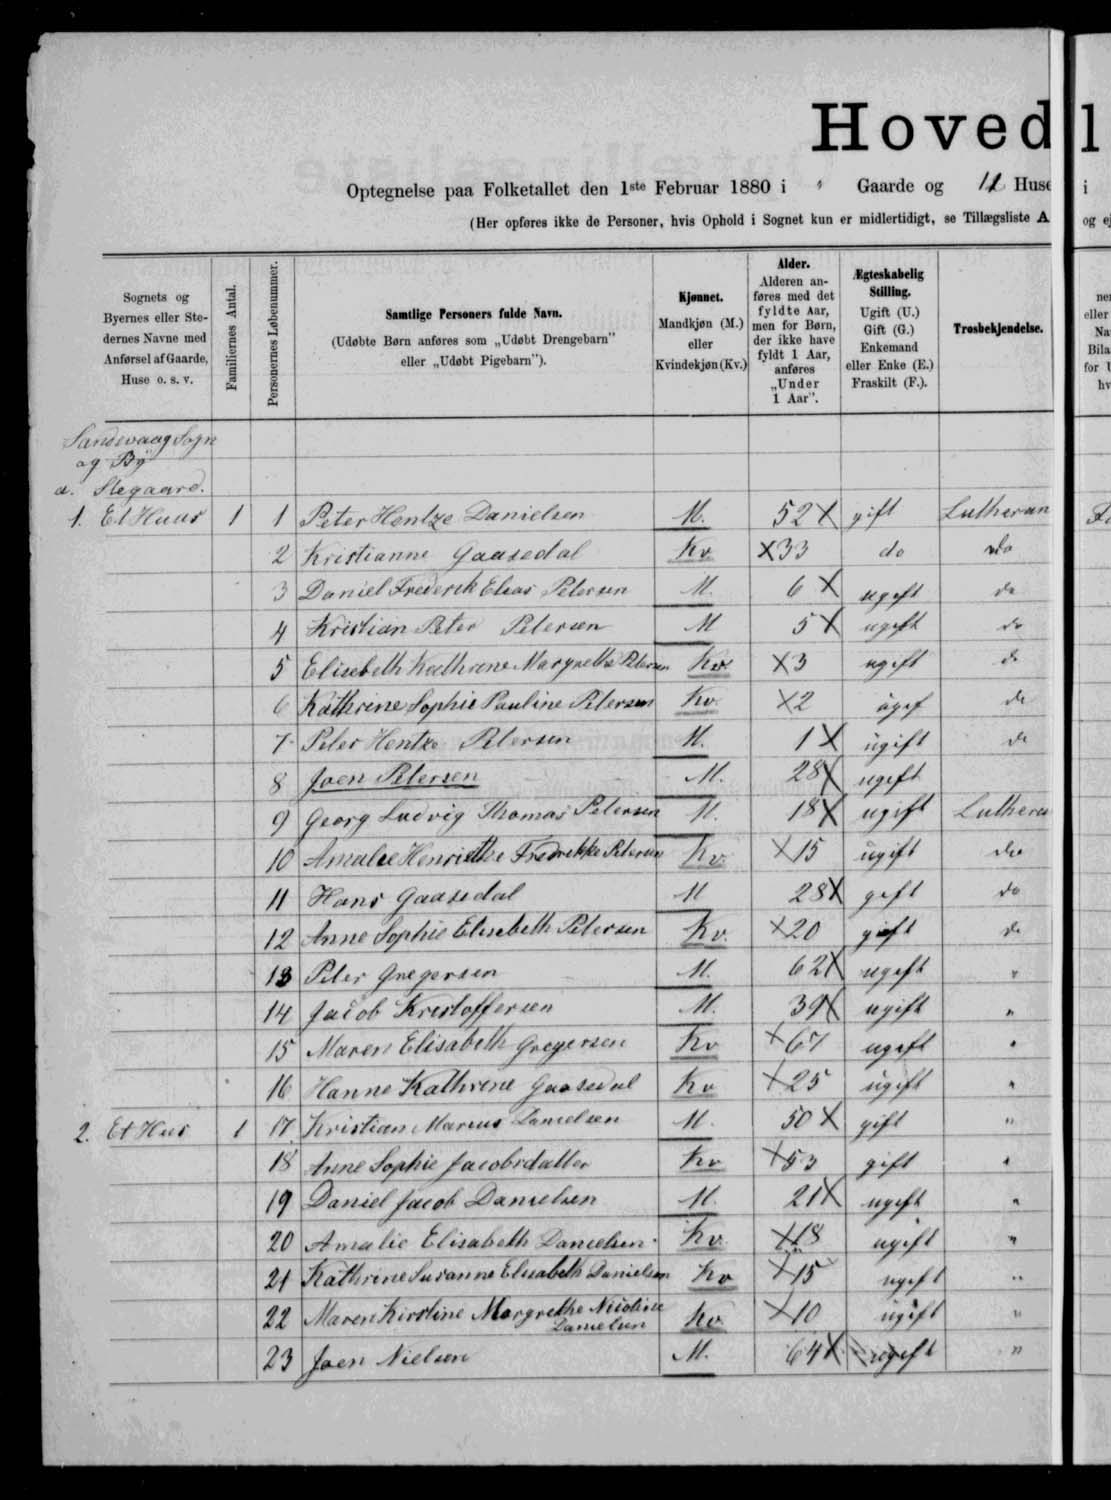 Hoved
Optegnelse paa Folketallet den 1ste Februar 1880 i " Gaarde og 11 Huse i
(Her opføres ikke de Personer, hvis Ophold i Sognet kun er midlertidigt, se Tillægsliste A og ej
Sognets og Byernes eller Stedernes Navne med Anførsel af Gaarde, Huse o. s. v.
Familiernes Antal.
Personernes Løbenummer.
Samtlige Personers fulde Navn.
(Udøbte Børn anføres som „Udøbt Drengebarn" eller „Udøbt Pigebarn").
Kjønnet.
Mandkjøn (M.) eller Kvindekjøn (Kv.)
Alder.
Alderen anføres med det fyldte Aar, men for Børn, der ikke have fyldt 1 Aar, anføres „Under 1 Aar".
Ægteskabelig Stilling.
Ugift (U.) Gift (G.) Enkemand eller Enke (E.) Fraskilt (F.).
Trosbekjendelse.
Sandevaag Sogn
og By
a. Stegaard.
1. Et Huus 1 1 Peter Hentze Danielsen M. 52 X gift Lutheran
2 Kristianne Gaasedal Kv X 33 do do
3 Daniel Frederik Elias Petersen M. 6 X ugift do
4 Kristian Peter Petersen M 5 X ugift do
5 Elisabeth Kathrine Margrethe Petersen Kv X 3 ugift do
6 Kathrine Sophie Pauline Petersen Kv. X 2 ugif do
7 Peter Hentze Petersen M. 1 X ugift do
8 Joen Petersen M. 28 X ugift
9 Georg Ludvig Thomas Petersen M. 18 X ugift Luthera
10 Amalie Henriette Fredrikke Petersen Kv. X 15 ugift do
11 Hans Gaasedal M 28 X gift do
12 Anne Sophie Elisebeth Petersen Kv. X 20 gift do
13 Peter Gregersen M. 62 X ugift "
14 Jacob Kristoffersen M. 39 X ugift "
15 Maren Elisabeth Gregersen Kv X 67 ugift "
16 Hanne Kathrine Gaasedal Kv X 25 ugift "
2. Et Hus 1 17 Kristian Marius Danielsen M. 50 X gift "
18 Anne Sophie Jacobsdatter Kv X 53 gift "
19 Daniel Jacob Danielsen M. 21 X ugift "
20 Amalie Elisabeth Danielsen Kv. X 18 ugift "
21 Kathrine Susanne Elisabeth Danielsen Kv X 15 ugift "
22 Maren Kirstine Margrethe Nicoline Danielsen Kv. X 10 ugift "
23 Joen Nielsen M. 64 X ugift "